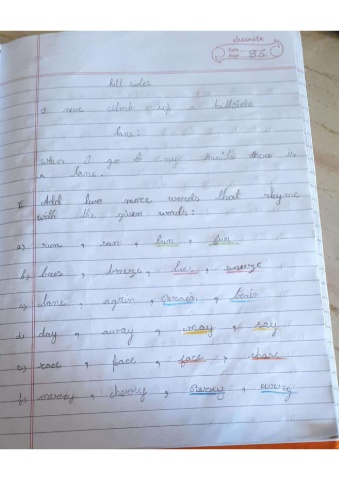 classmate
Date
Page 85
hill sides
climb up a hillside
lane:
When I go to my aunt's there is
a lane.
Add two more words that rhyme
with the given words:
a) run, sun, bun, fun
b) bees, breeze, lies, sneeze
c) lane, again,
d) day, away, may, say
e) race, pace, face,
f)